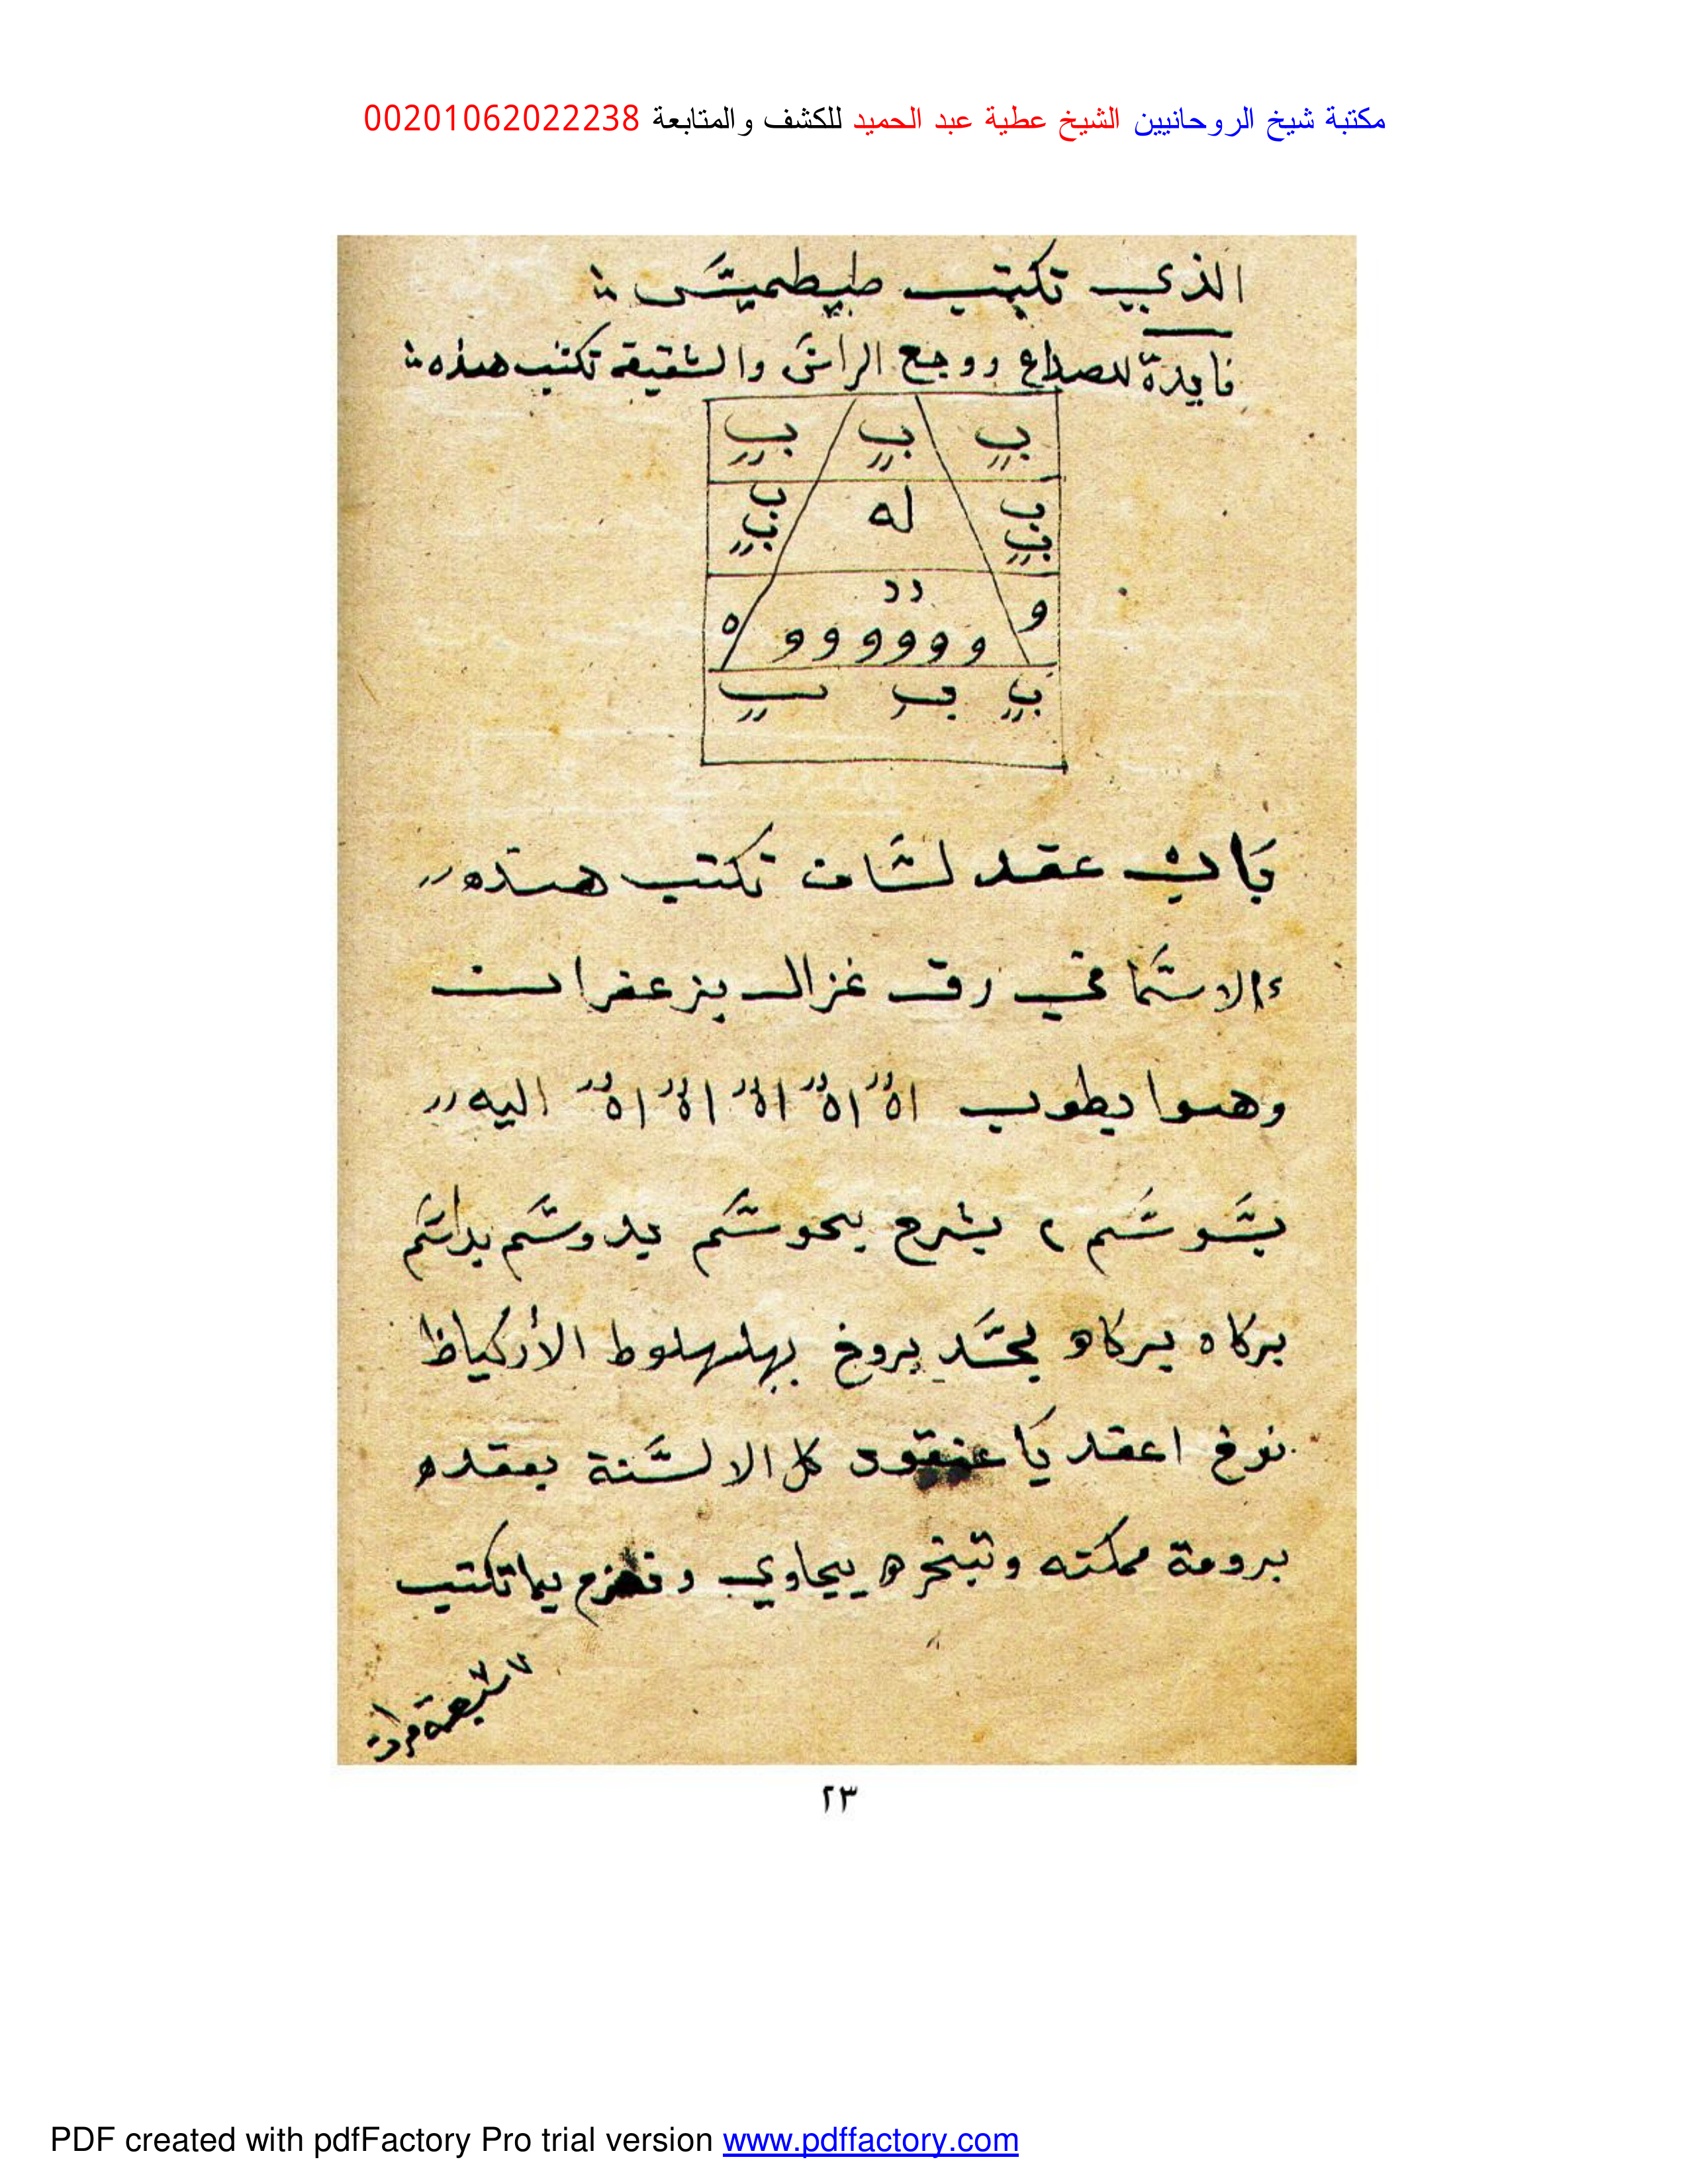 مكتبة شيخ الروحانيين الشيخ عطية عبد الحميد للكشف والمتابعة 00201062022238
الذي تكتب طيطميش
فايدة للصداع ووجع الراس والشقيقه تكتب هذه
ب ب ب
ب له ب
ب ب
دد
و و و و و و و ه
ب ب ب
باب عقد لسان تكتب هذه
الاسما في رق غزال بزعفران
وهوا يطوب اه اه اه اه اه اه اليه
بشوشم يشرع يحوشم يدوشم
بركاه يركاه بروخ بهلهلوط
نوخ اعقد يا كل الالسنة بعقده
برومة وتبخره بجاوي بما تكتب
سبعة مرات
٢٣
PDF created with pdfFactory Pro trial version www.pdffactory.com